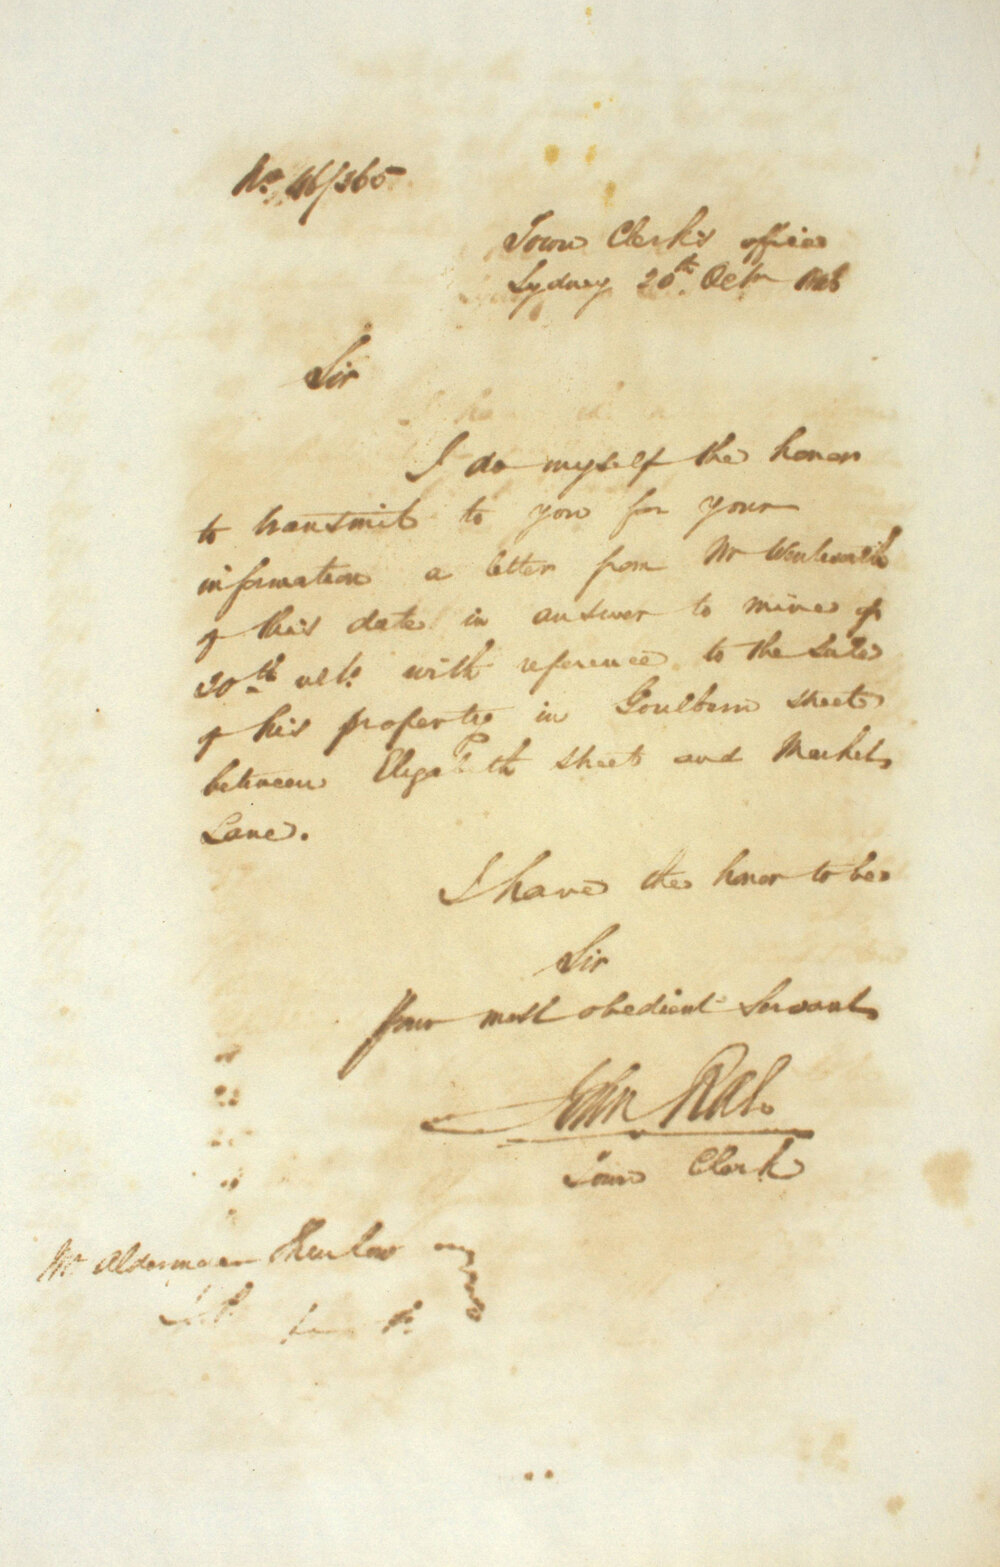 No. 46/365
Town Clerk's office
Sydney 20th Octr 1846
Sir
I do myself the honor
to transmit to you for your
information a letter from Mr Wentworth
of this date in answer to mine of
30th ult. with reference to the Sale
of his property in Goulburn Street
between Elizabeth Street and Market
Lane.
I have the honor to be
Sir
Your most obedient Servant
John Rae
Town Clerk
Mr Alderman Thurlow